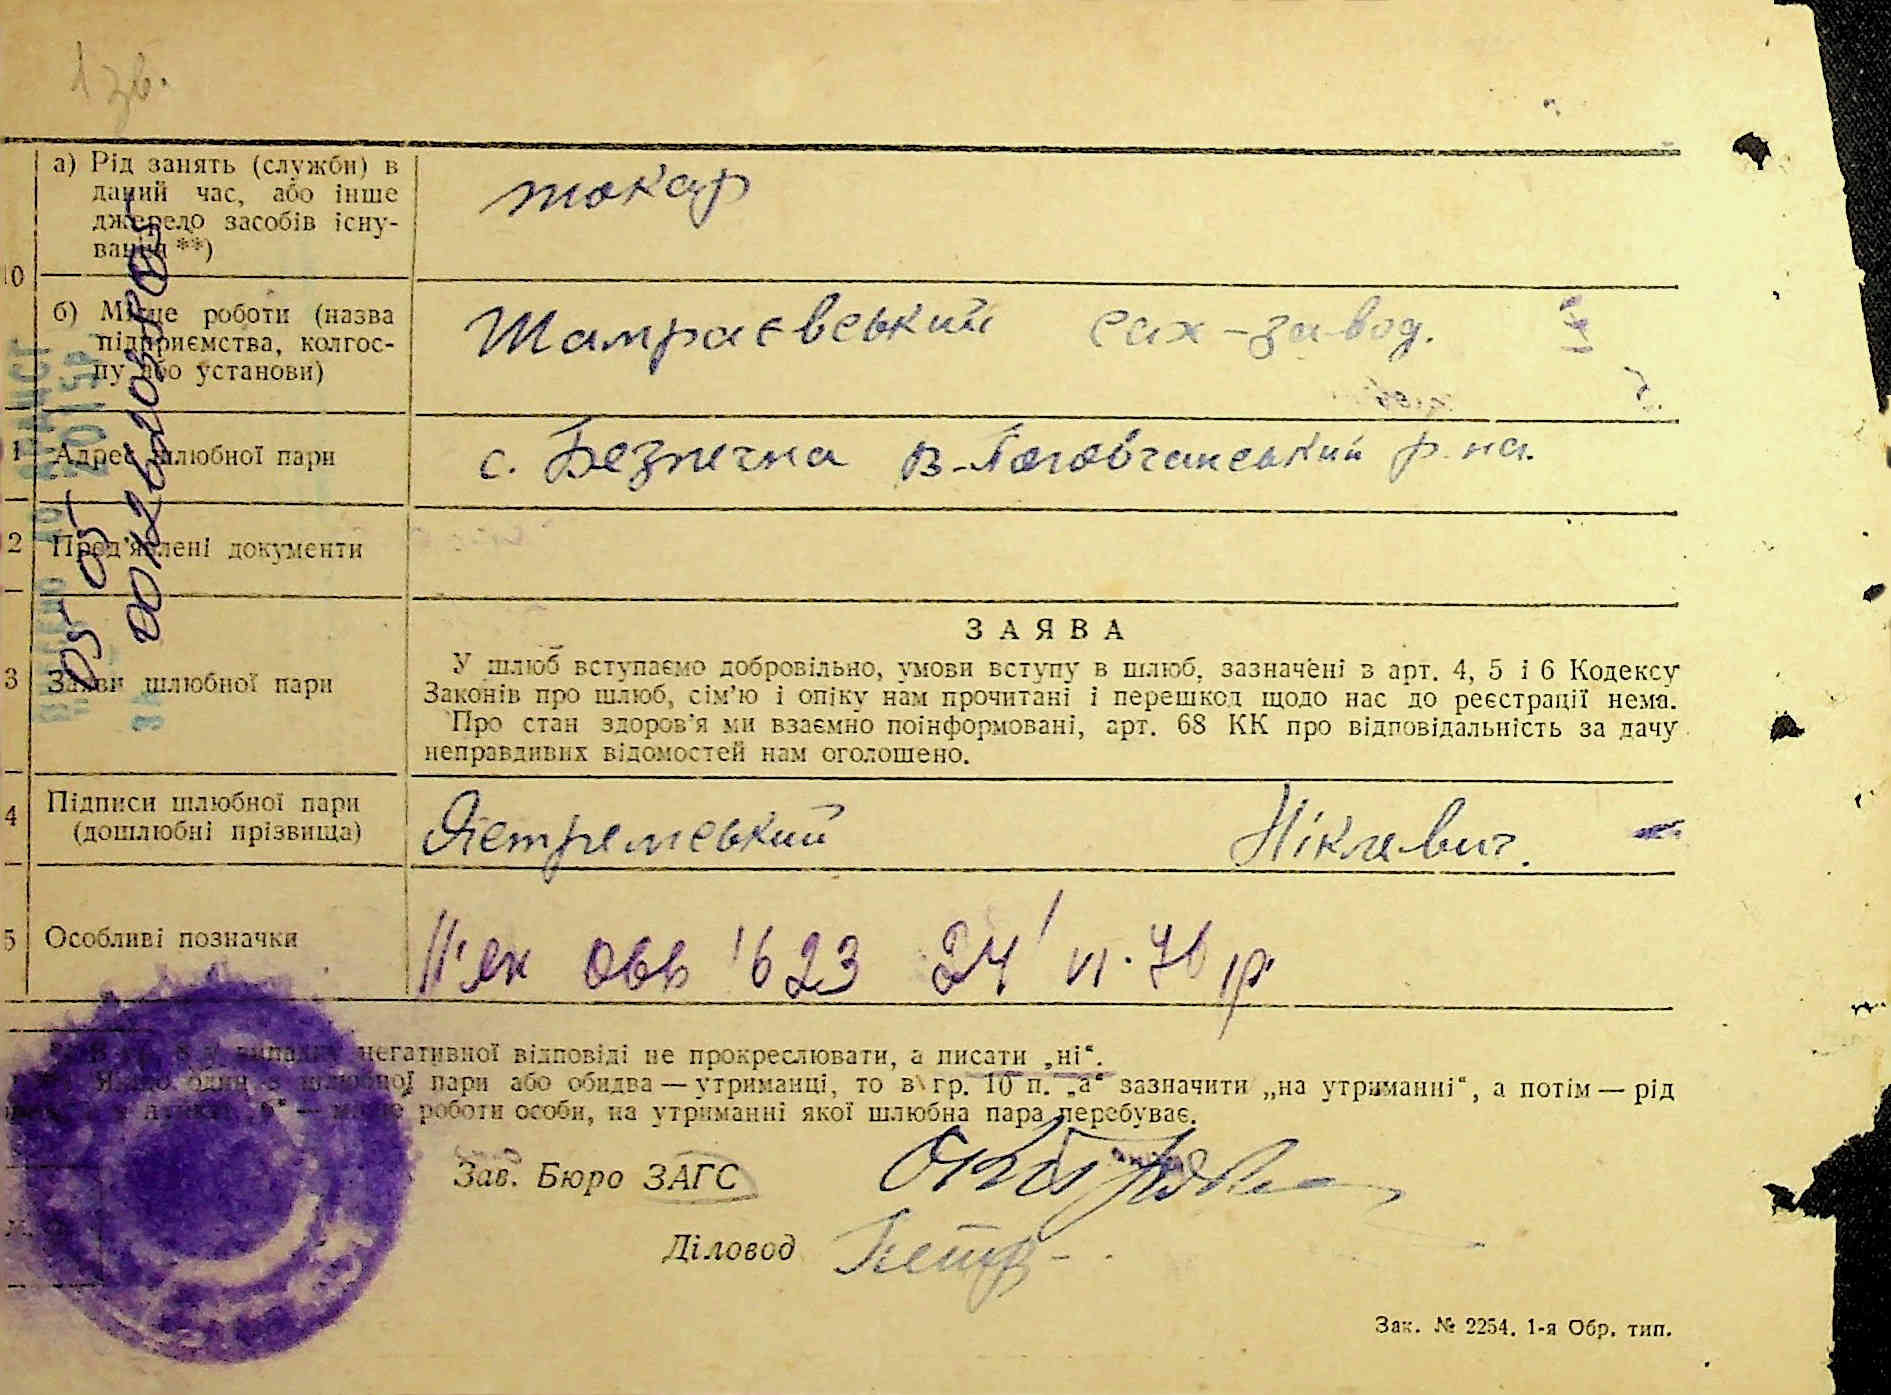 1 зв.
а) Рід занять (служби) в
даний час, або інше
джерело засобів існу-
вання **)
токар
10
б) Місце роботи (назва
підприємства, колгос-
пу або установи)
Шамраєвський сах-завод.
1 Адрес шлюбної пари
с. Безпечна В-Половчанський р-на.
2 Пред'явлені документи
ЗАЯВА
3 Заяви шлюбної пари
У шлюб вступаємо добровільно, умови вступу в шлюб, зазначені в арт. 4, 5 і 6 Кодексу
Законів про шлюб, сім'ю і опіку нам прочитані і перешкод щодо нас до реєстрації нема.
Про стан здоров'я ми взаємно поінформовані, арт. 68 КК про відповідальність за дачу
неправдивих відомостей нам оголошено.
4 Підписи шлюбної пари
(дошлюбні прізвища)
Ястремський Ніклевич.
5 Особливі позначки
623 24 VI. 76 р
у випадку негативної відповіді не прокреслювати, а писати „ні“.
Якщо один з шлюбної пари або обидва — утриманці, то в гр. 10 п. „а“ зазначити „на утриманні“, а потім — рід
роботи особи, на утриманні якої шлюбна пара перебуває.
Зав. Бюро ЗАГС
Діловод
Зак. № 2254. 1-я Обр. тип.